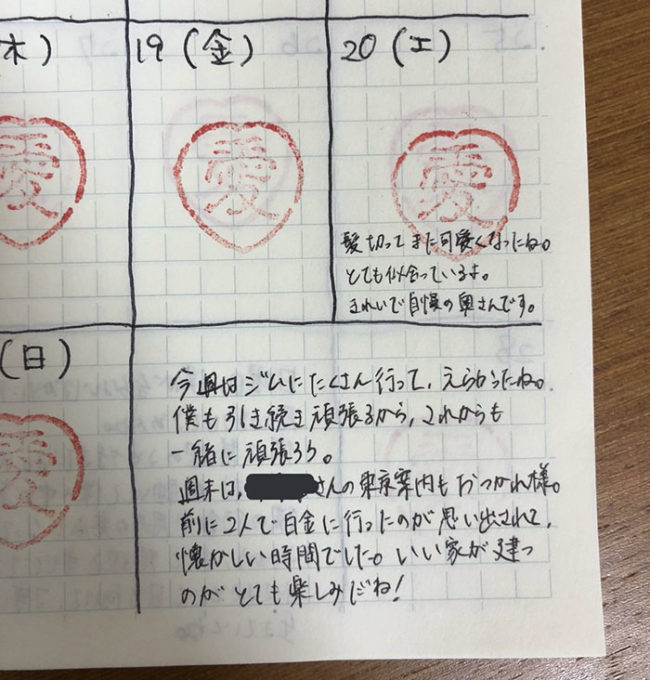 木)
19(金)
20(土)
愛
愛
愛
髪切ってまた可愛くなったね。
とても似合っているよ。
きれいで自慢の奥さんです。
(日)
愛
今週はジムにたくさん行って、えらかったね。
僕も引き続き頑張るから、これからも
一緒に頑張ろう。
週末は、さんの東京案内もおつかれ様。
前に2人で白金に行ったのが思い出されて、
懐かしい時間でした。いい家が建つ
のがとても楽しみだね!